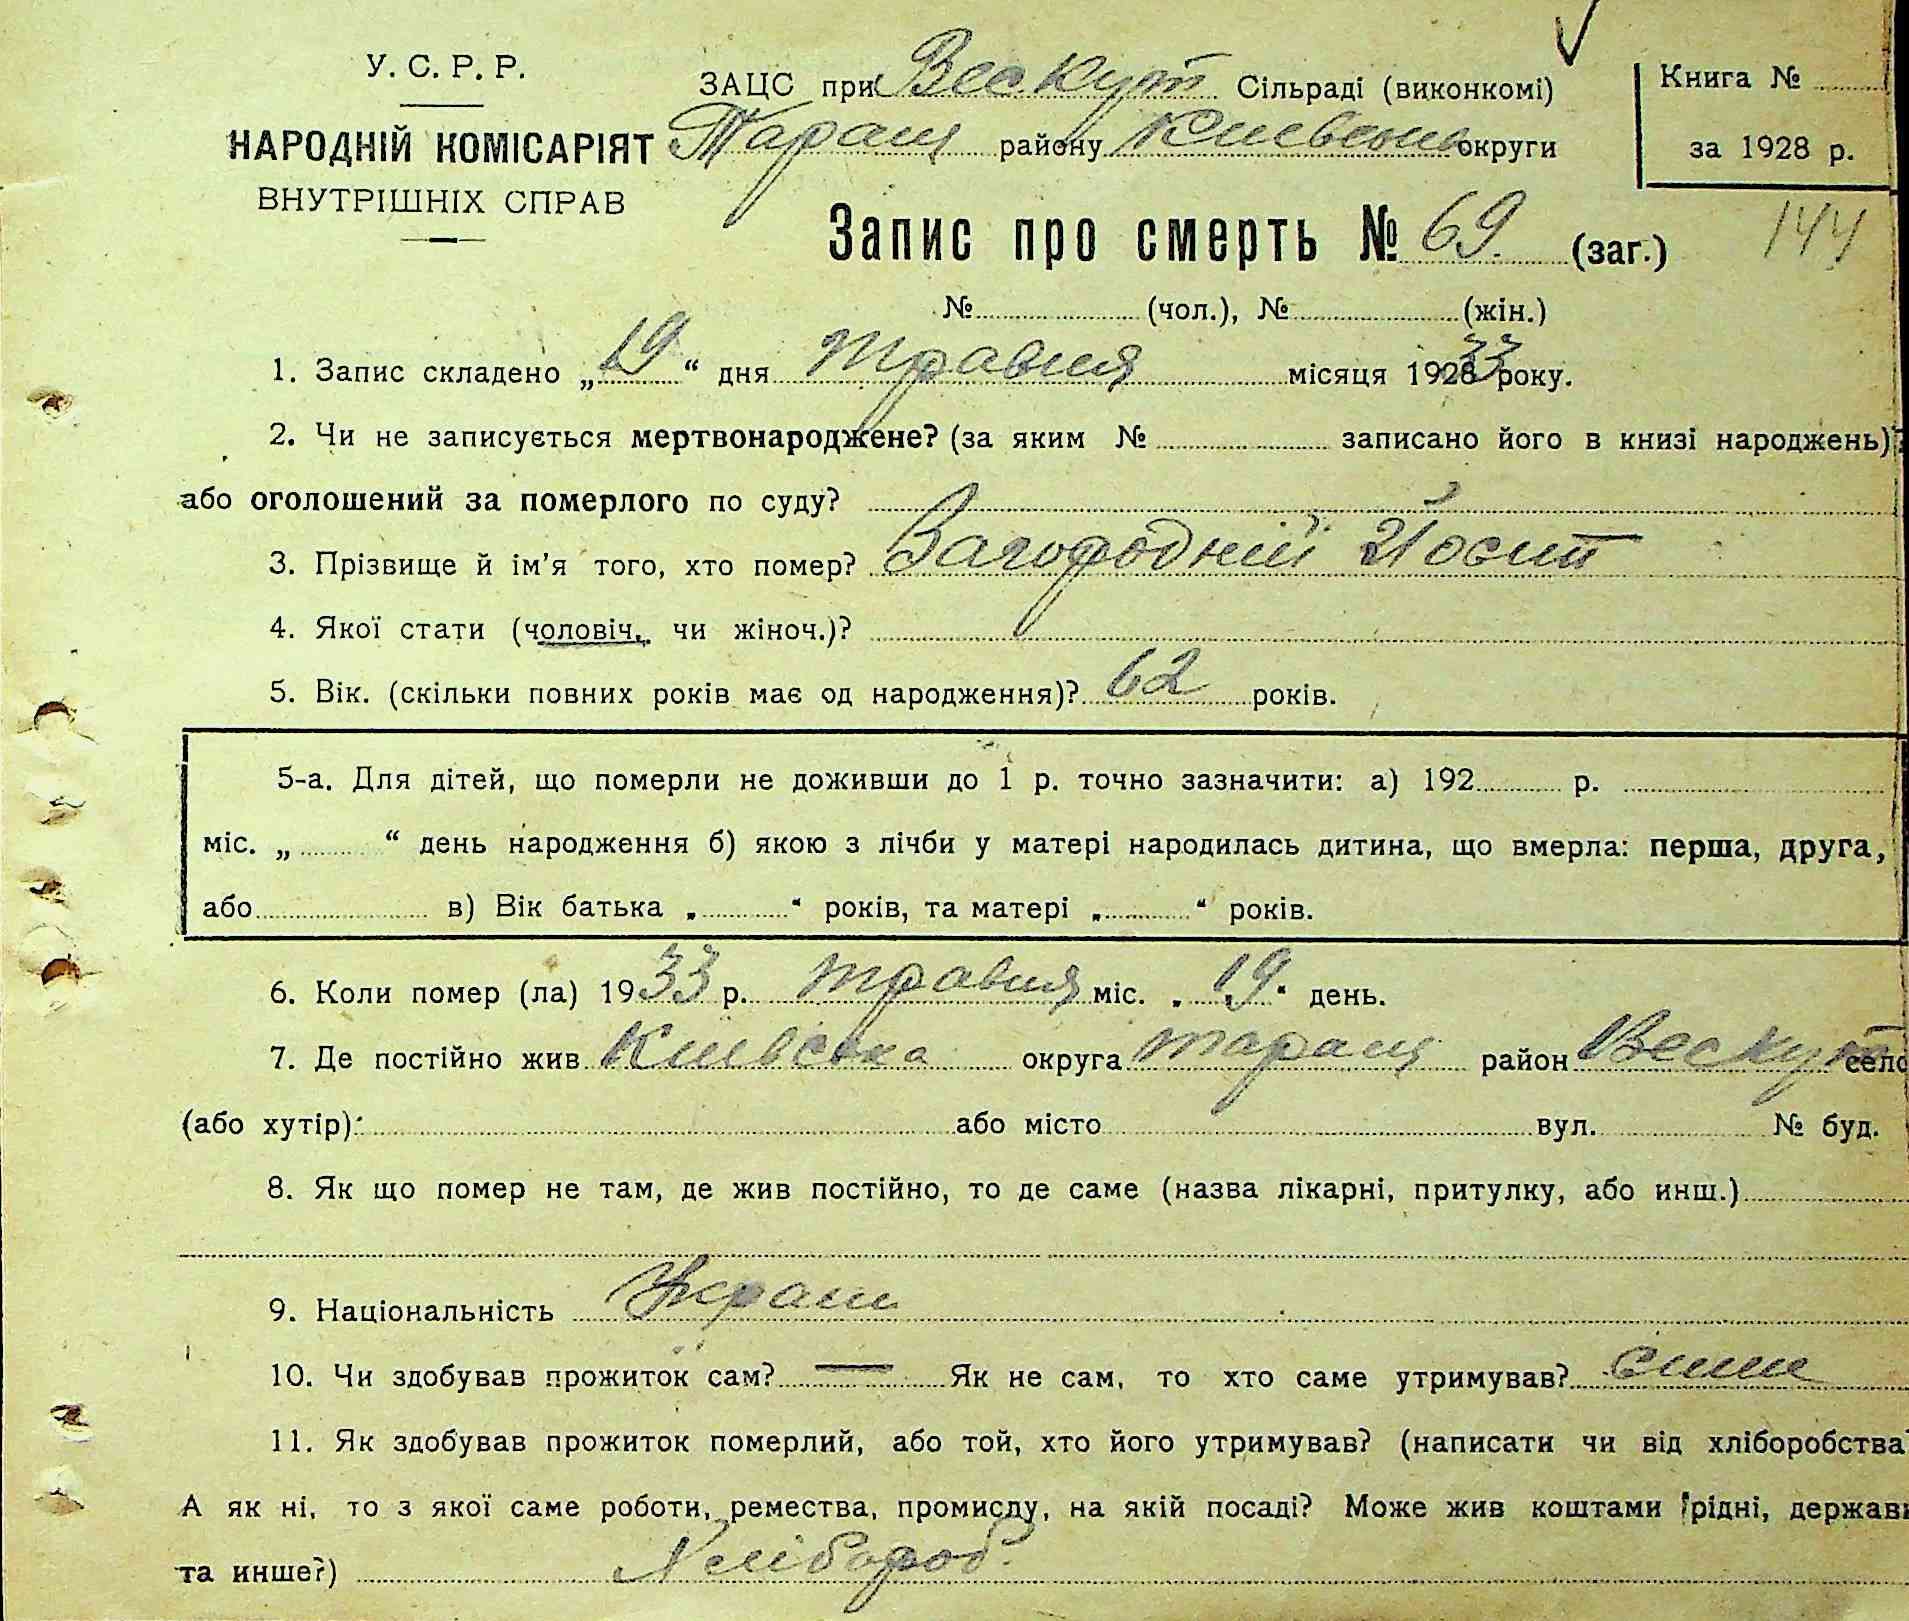 У. С. Р. Р.
НАРОДНІЙ КОМІСАРІЯТ
ВНУТРІШНІХ СПРАВ
ЗАЦС при Вескут Сільраді (виконкомі)
Таращ району Київської округи
Книга №
за 1928 р.
Запис про смерть № 69. (заг.)
144
№ (чол.), № (жін.)
1. Запис складено „19“ дня травня місяця 192833 року.
2. Чи не записується мертвонароджене? (за яким № записано його в книзі народжень)?
або оголошений за померлого по суду?
3. Прізвище й ім'я того, хто помер? Загородній Йосип
4. Якої стати (чоловіч. чи жіноч.)?
5. Вік. (скільки повних років має од народження)? 62 років.
5-а. Для дітей, що померли не доживши до 1 р. точно зазначити: а) 192 р.
міс. „ “ день народження б) якою з лічби у матері народилась дитина, що вмерла: перша, друга,
або в) Вік батька „ “ років, та матері „ “ років.
6. Коли помер (ла) 1933 р. травня міс. „19“ день.
7. Де постійно жив Київська округа таращ район Вескут село
(або хутір): або місто вул. № буд.
8. Як що помер не там, де жив постійно, то де саме (назва лікарні, притулку, або инш.)
9. Національність Украш
10. Чи здобував прожиток сам? — Як не сам, то хто саме утримував? сини
11. Як здобував прожиток померлий, або той, хто його утримував? (написати чи від хліборобства?
А як ні, то з якої саме роботи, ремества, промислу, на якій посаді? Може жив коштами рідні, держави
та инше?) Хлібороб.